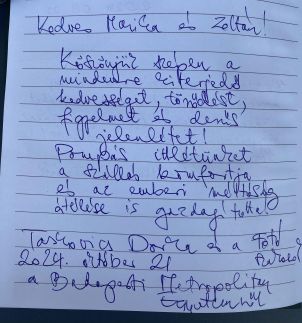 Kedves Marika és Zoltán!
Köszönjük szépen a
mindenre kiterjedő
kedvességet, törődést,
figyelmet és derűs
jelenlétet!
Pompás ittlétünket
a szállás komfortja
és az emberi méltóság
átélése is gazdagította!
Taskovics Dorka és a Fotó
2024. október 21
a Budapesti Metropolitan
Egyetemről